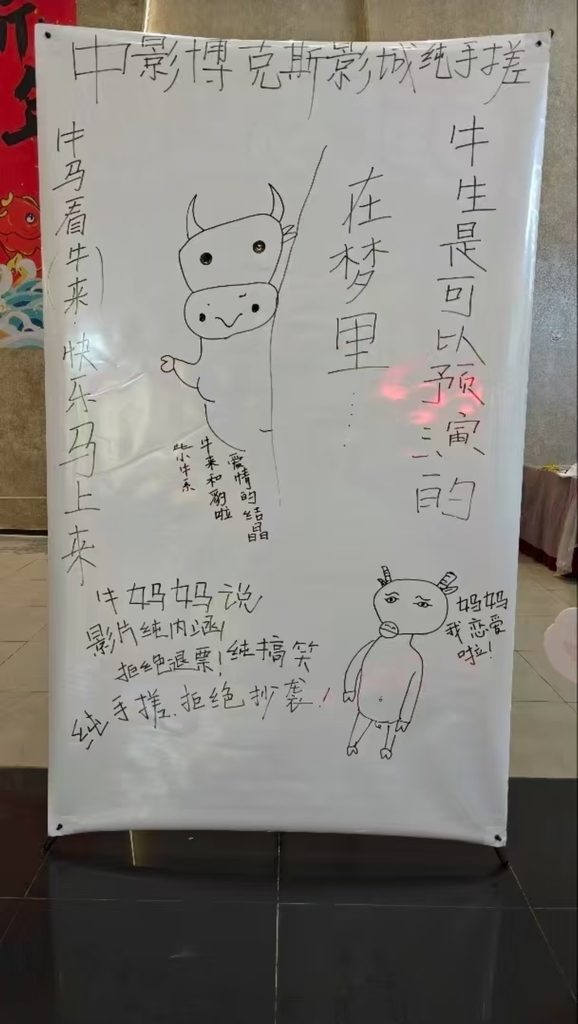 中影博克斯影城纯手搓
牛马看(牛来)快乐马上来
在梦里……
牛生是可以预演的
柴牛系
牛来和豹啦
爱情的结晶
牛妈妈说
影片纯内涵!
拒绝退票!纯搞笑
纯手搓.拒绝抄袭!
妈妈
我恋爱
啦!
新年